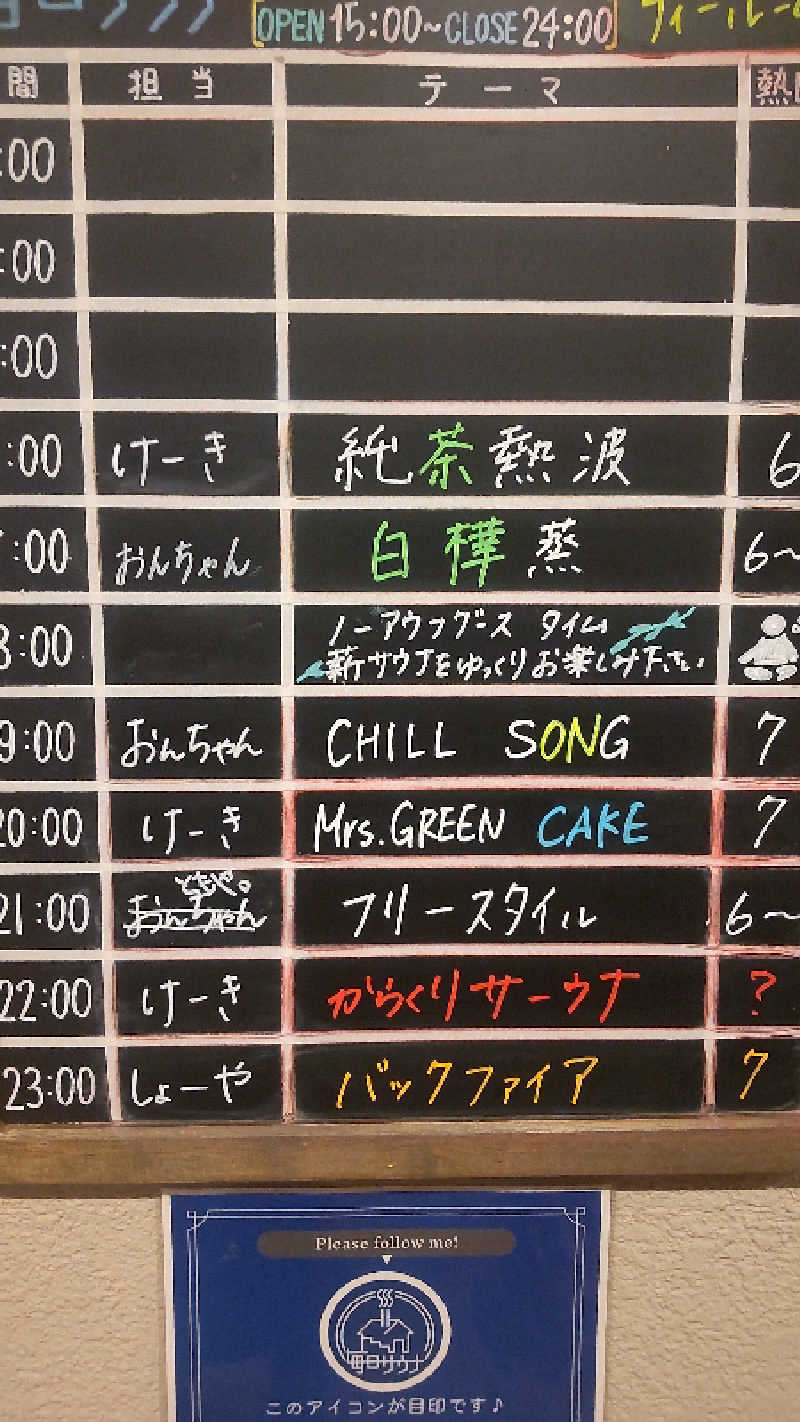 OPEN 15:00~CLOSE 24:00
間 担当 テーマ 熱
:00
:00
:00
:00 けーき 純茶熱波 6
:00 おんちゃん 白樺蒸 6~
8:00 ノーアウフグース タイム
薪サウナをゆっくりお楽しみ下さい
9:00 おんちゃん CHILL SONG 7
20:00 けーき Mrs.GREEN CAKE 7
ともや。
21:00 おんちゃん フリースタイル 6~
22:00 けーき からくりサーウナ ?
23:00 しょーや バックファイア 7
Please follow me!
毎日サウナ
このアイコンが目印です♪